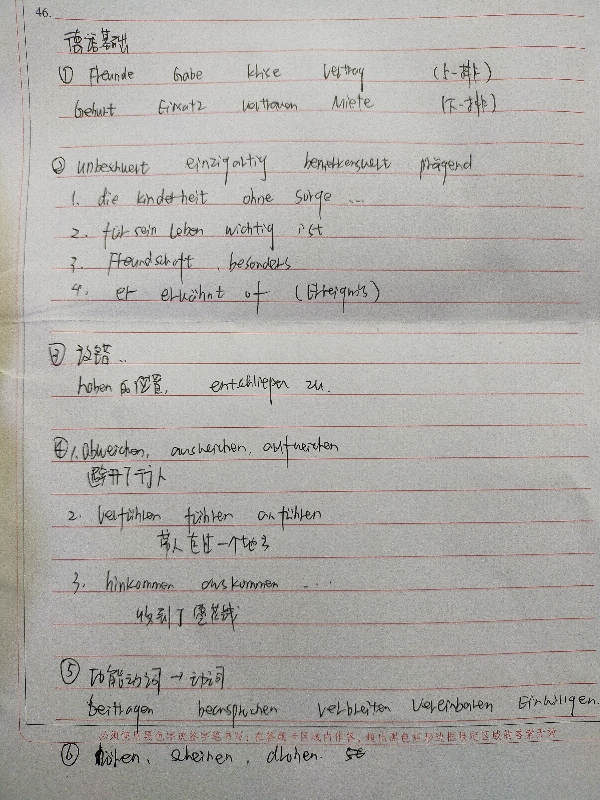 46.
德语基础
① Freunde Gabe Krise Vertrag (上一排)
Geburt Einsatz Vertrauen Miete (下一排)
② unbeschwert einzigartig bemerkenswert prägend
1. die kinderheit ohne sorge ...
2. für sein Leben wichtig ist
3. Freundschaft, besonders
4. er erwähnt oft (Ereignis)
③ 改错..
haben 的位置, entschließen zu.
④ 1. abweichen, ausweichen, aufweichen
避开了行人
2. verführen führen anführen
带人在过一个地方
3. hinkommen auskommen ...
收到了
⑤ 功能动词 → 动词
beitragen beanspruchen verbreiten vereinbaren Einwilligen.
⑥ scheinen, drohen.